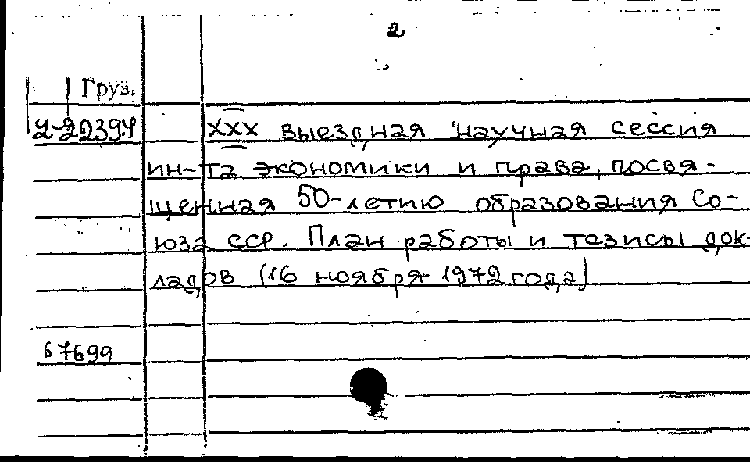 2
Груз.
2-22394 XXX выездная научная сессия
ин-та экономики и права, посвя-
щенная 50-летию образования Со-
юза ССР. План работы и тезисы док-
ладов (16 ноября 1972 года)
67699